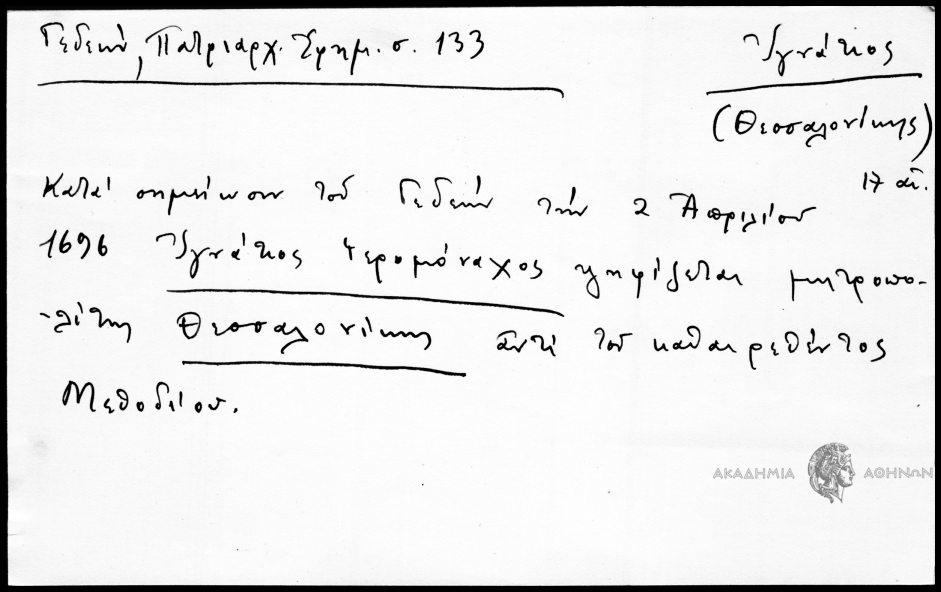 Γεδεών, Πατριαρχ. Ἐφημ. σ. 133
Ἰγνάτιος
(Θεσσαλονίκης)
17 αἰ.
Κατά σημείωσιν τοῦ Γεδεών τήν 2 Ἀπριλίου
1696 Ἰγνάτιος ἱερομόναχος ψηφίζεται μητροπο-
-λίτης Θεσσαλονίκης ἀντί τοῦ καθαιρεθέντος
Μεθοδίου.
ΑΚΑΔΗΜΙΑ ΑΘΗΝΩΝ